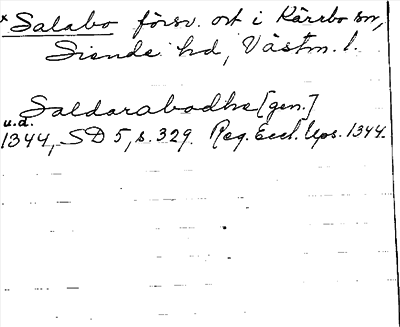 * Salabo försv. ort i Kärrbo sn,
Siende hd, Västm. l.
Saldarabodhe [gen.]
u.d.
1344, SD 5, s. 329. Reg. Eccl. Ups. 1344.